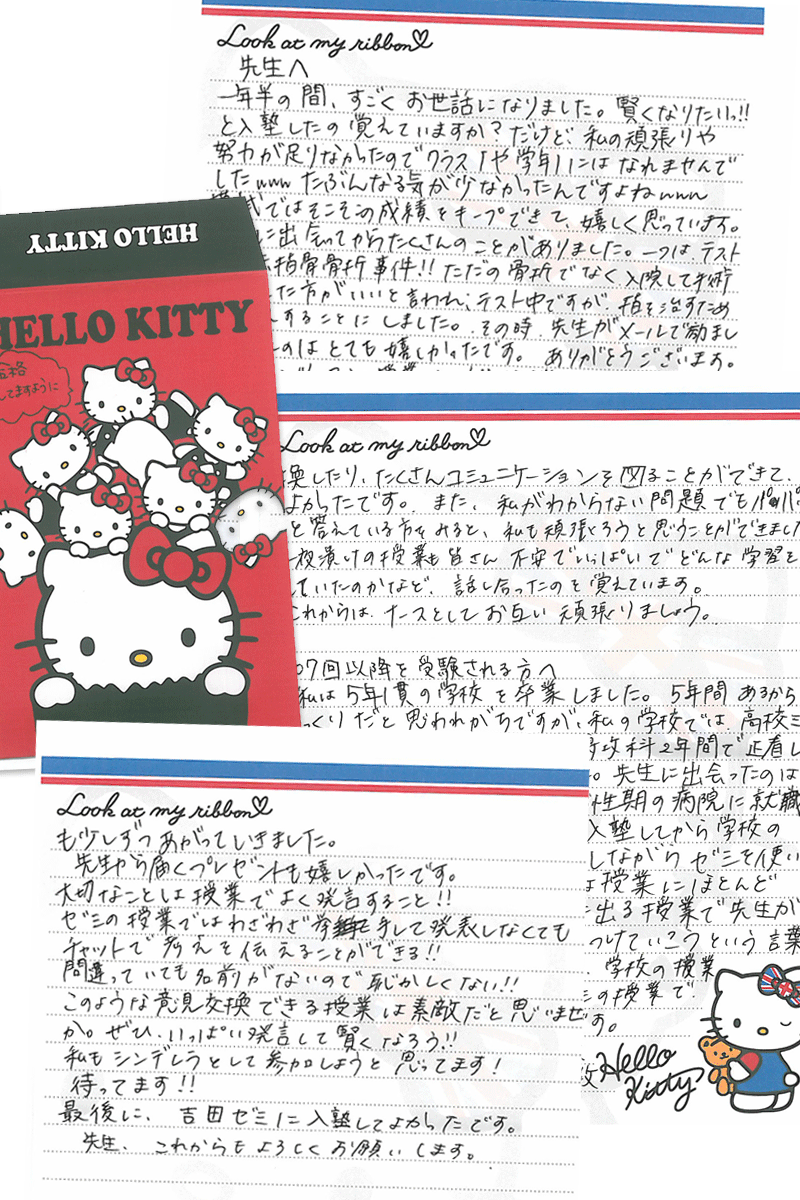 Look at my ribbon
先生へ
一年半の間、すごくお世話になりました。賢くなりたいっ!!
と入塾したの覚えていますか?だけど、私の頑張りや
努力が足りなかったのでクラス1や学年1にはなれませんで
したwww たぶんなる気が少なかったんですよねwww
ではそこそこの成績をキープできて、嬉しく思っています。
に出会ってからたくさんのことがありました。一つは、テスト
指骨骨折事件!! ただの骨折でなく入院して手術
た方がいいと言われ、テスト中ですが、指を治すため
することにしました。その時、先生がメールで励まし
のはとても嬉しかったです。ありがとうございます。
HELLO KITTY
HELLO KITTY
合格
してますように
Look at my ribbon
換したり、たくさんコミュニケーションを図ることができて、
よかったです。また、私がわからない問題でもパッパ
と答えている方をみると、私も頑張ろうと思うことができまし
夜漬けの授業も皆さん不安でいっぱいでどんな学習を
していたのかなど、話し合ったのを覚えています。
これからは、ナースとしてお互い頑張りましょう。
07回以降を受験される方へ
私は5年1貫の学校を卒業しました。5年間あるから
っくりだと思われがちですが、私の学校では高校三
専攻科2年間で正看し
。先生に出会ったのは
性期の病院に就職
入塾してから学校の
しながらゼミを使い
は授業にほとんど
出る授業で先生が
つけていこうという言葉
、学校の授業
ミの授業で
す。
Hello
Kitty
Look at my ribbon
も少しずつあがっていきました。
先生から届くプレゼントも嬉しかったです。
大切なことは授業でよく発言すること!!
ゼミの授業ではわざわざ挙手して発表しなくても
チャットで考えを伝えることができる!!
間違っていても名前がないので恥かしくない!!
このような意見交換できる授業は素敵だと思いませ
か。ぜひ、いっぱい発言して賢くなろう!!
私もシンデレラとして参加しようと思ってます!
待ってます!!
最後に、吉田ゼミに入塾してよかったです。
先生、これからもよろしくお願いします。